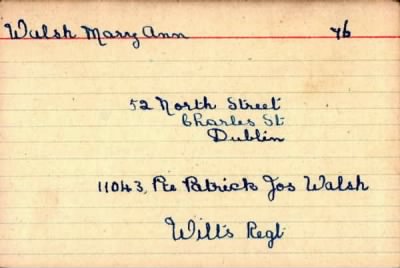 Walsh Mary Ann 76
52 North Street
Charles St
Dublin
11043, Pte Patrick Jos Walsh
Wilts Regt